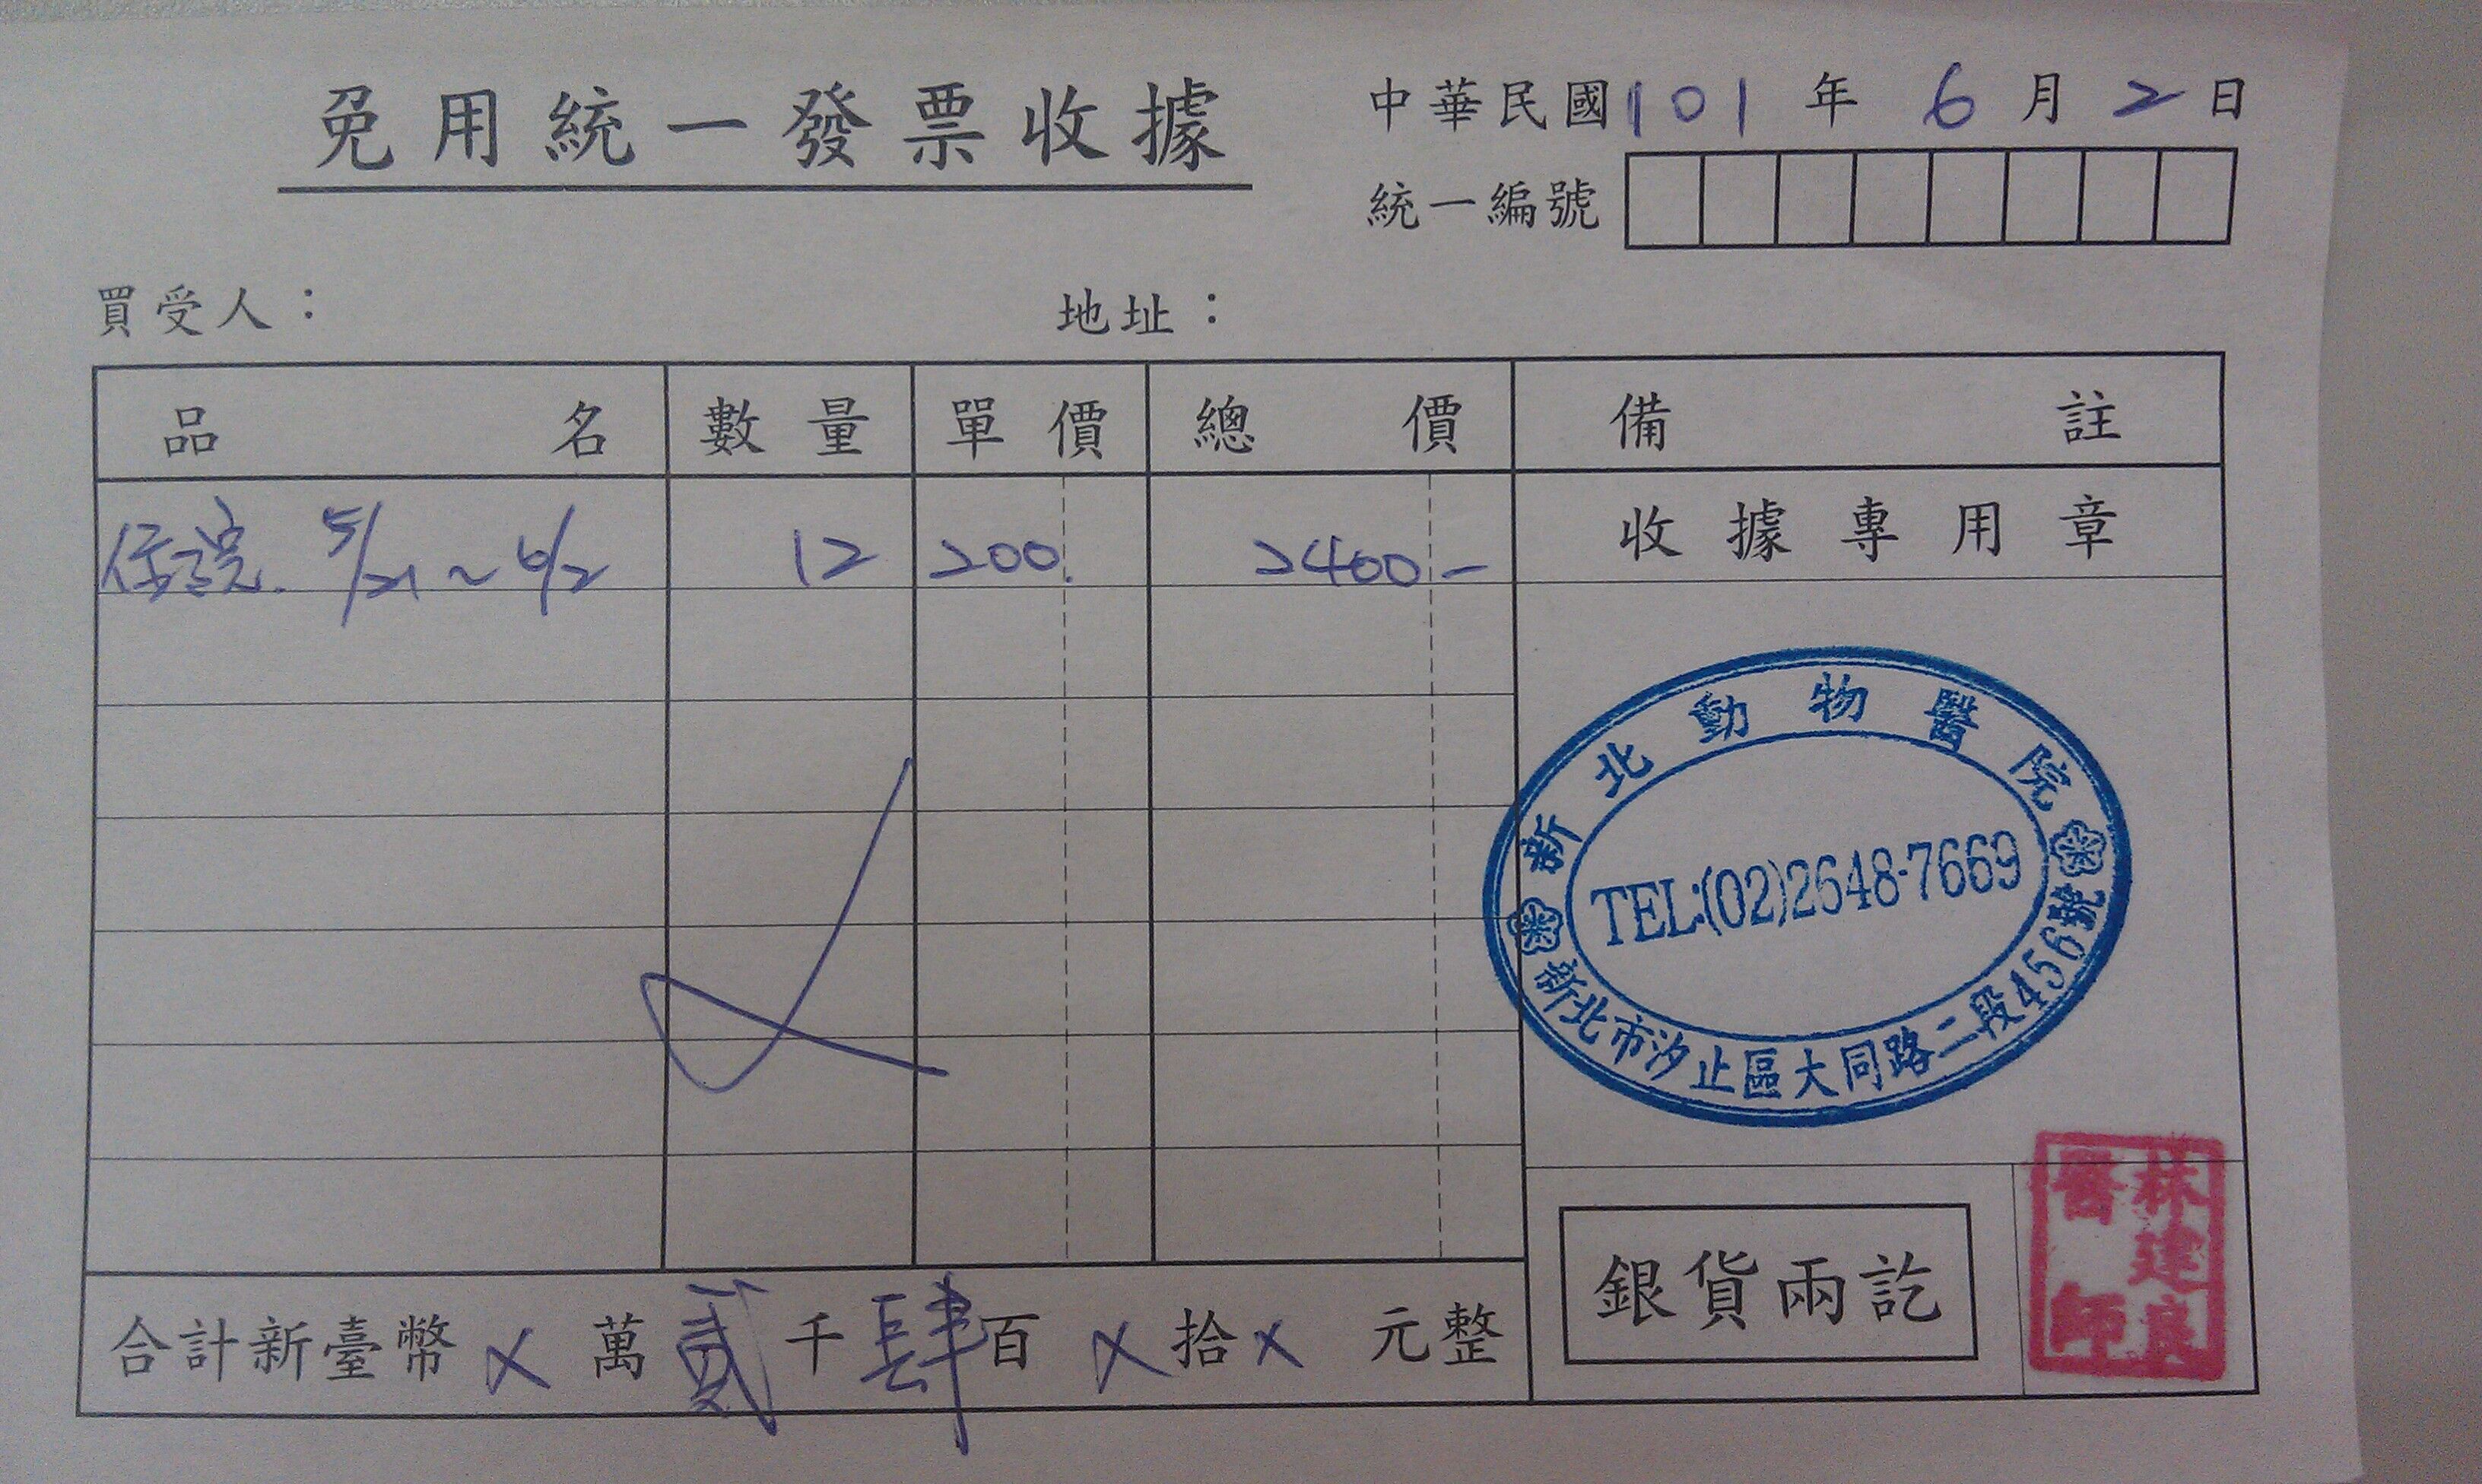 免用統一發票收據
中華民國101年6月2日
統一編號
買受人：
地址：
品名 數量 單價 總價 備註
住院. 5/21~6/2 12 200. 2400-
收據專用章
新北動物醫院
TEL:(02)2648-7669
新北市汐止區大同路二段456號
合計新臺幣 X 萬 貳 千 肆 百 X 拾 X 元整
銀貨兩訖
林建良
醫師